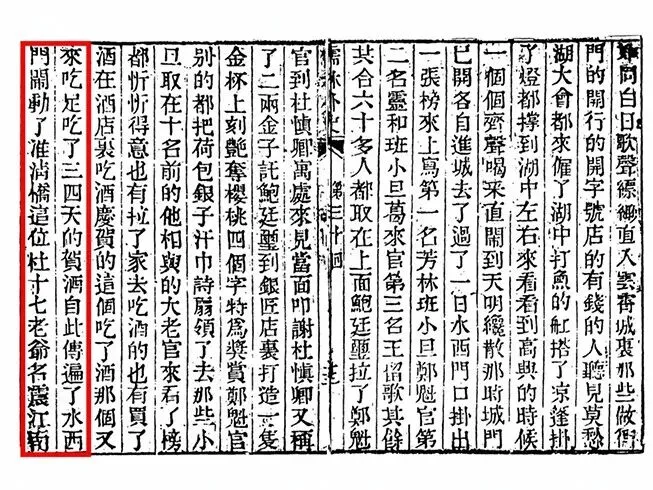 難同白日歌聲縹緲直入雲霄城裏那些做衙
門的開行的開字號店的有錢的人聽見莫愁
湖大會都來僱了湖中打魚的舡搭了凉蓬掛
了燈都撐到湖中左右來看看到高興的時候
一個個齊聲喝采直鬧到天明纔散那時城門
已開各自進城去了過了一日水西門口掛出
一張榜來上寫第一名芳林班小旦鄭魁官第
二名靈和班小旦葛來官第三名王留歌其餘
共合六十多人都取在上面鮑廷璽拉了鄭魁
儒林外史 第三十回
官到杜慎卿寓處來見當面叩謝杜慎卿又稱
了二兩金子託鮑廷璽到銀匠店裏打造一隻
金杯上刻艷奪櫻桃四個字特爲奬賞鄭魁官
別的都把荷包銀子汗巾詩扇領了去那些小
旦取在十名前的他相與的大老官來看了榜
都忻忻得意也有拉了家去吃酒的也有買了
酒在酒店裏吃酒慶賀的這個吃了酒那個又
來吃足吃了三四天的賀酒自此傳遍了水西
門鬧動了淮清橋這位杜十七老爺名震江南